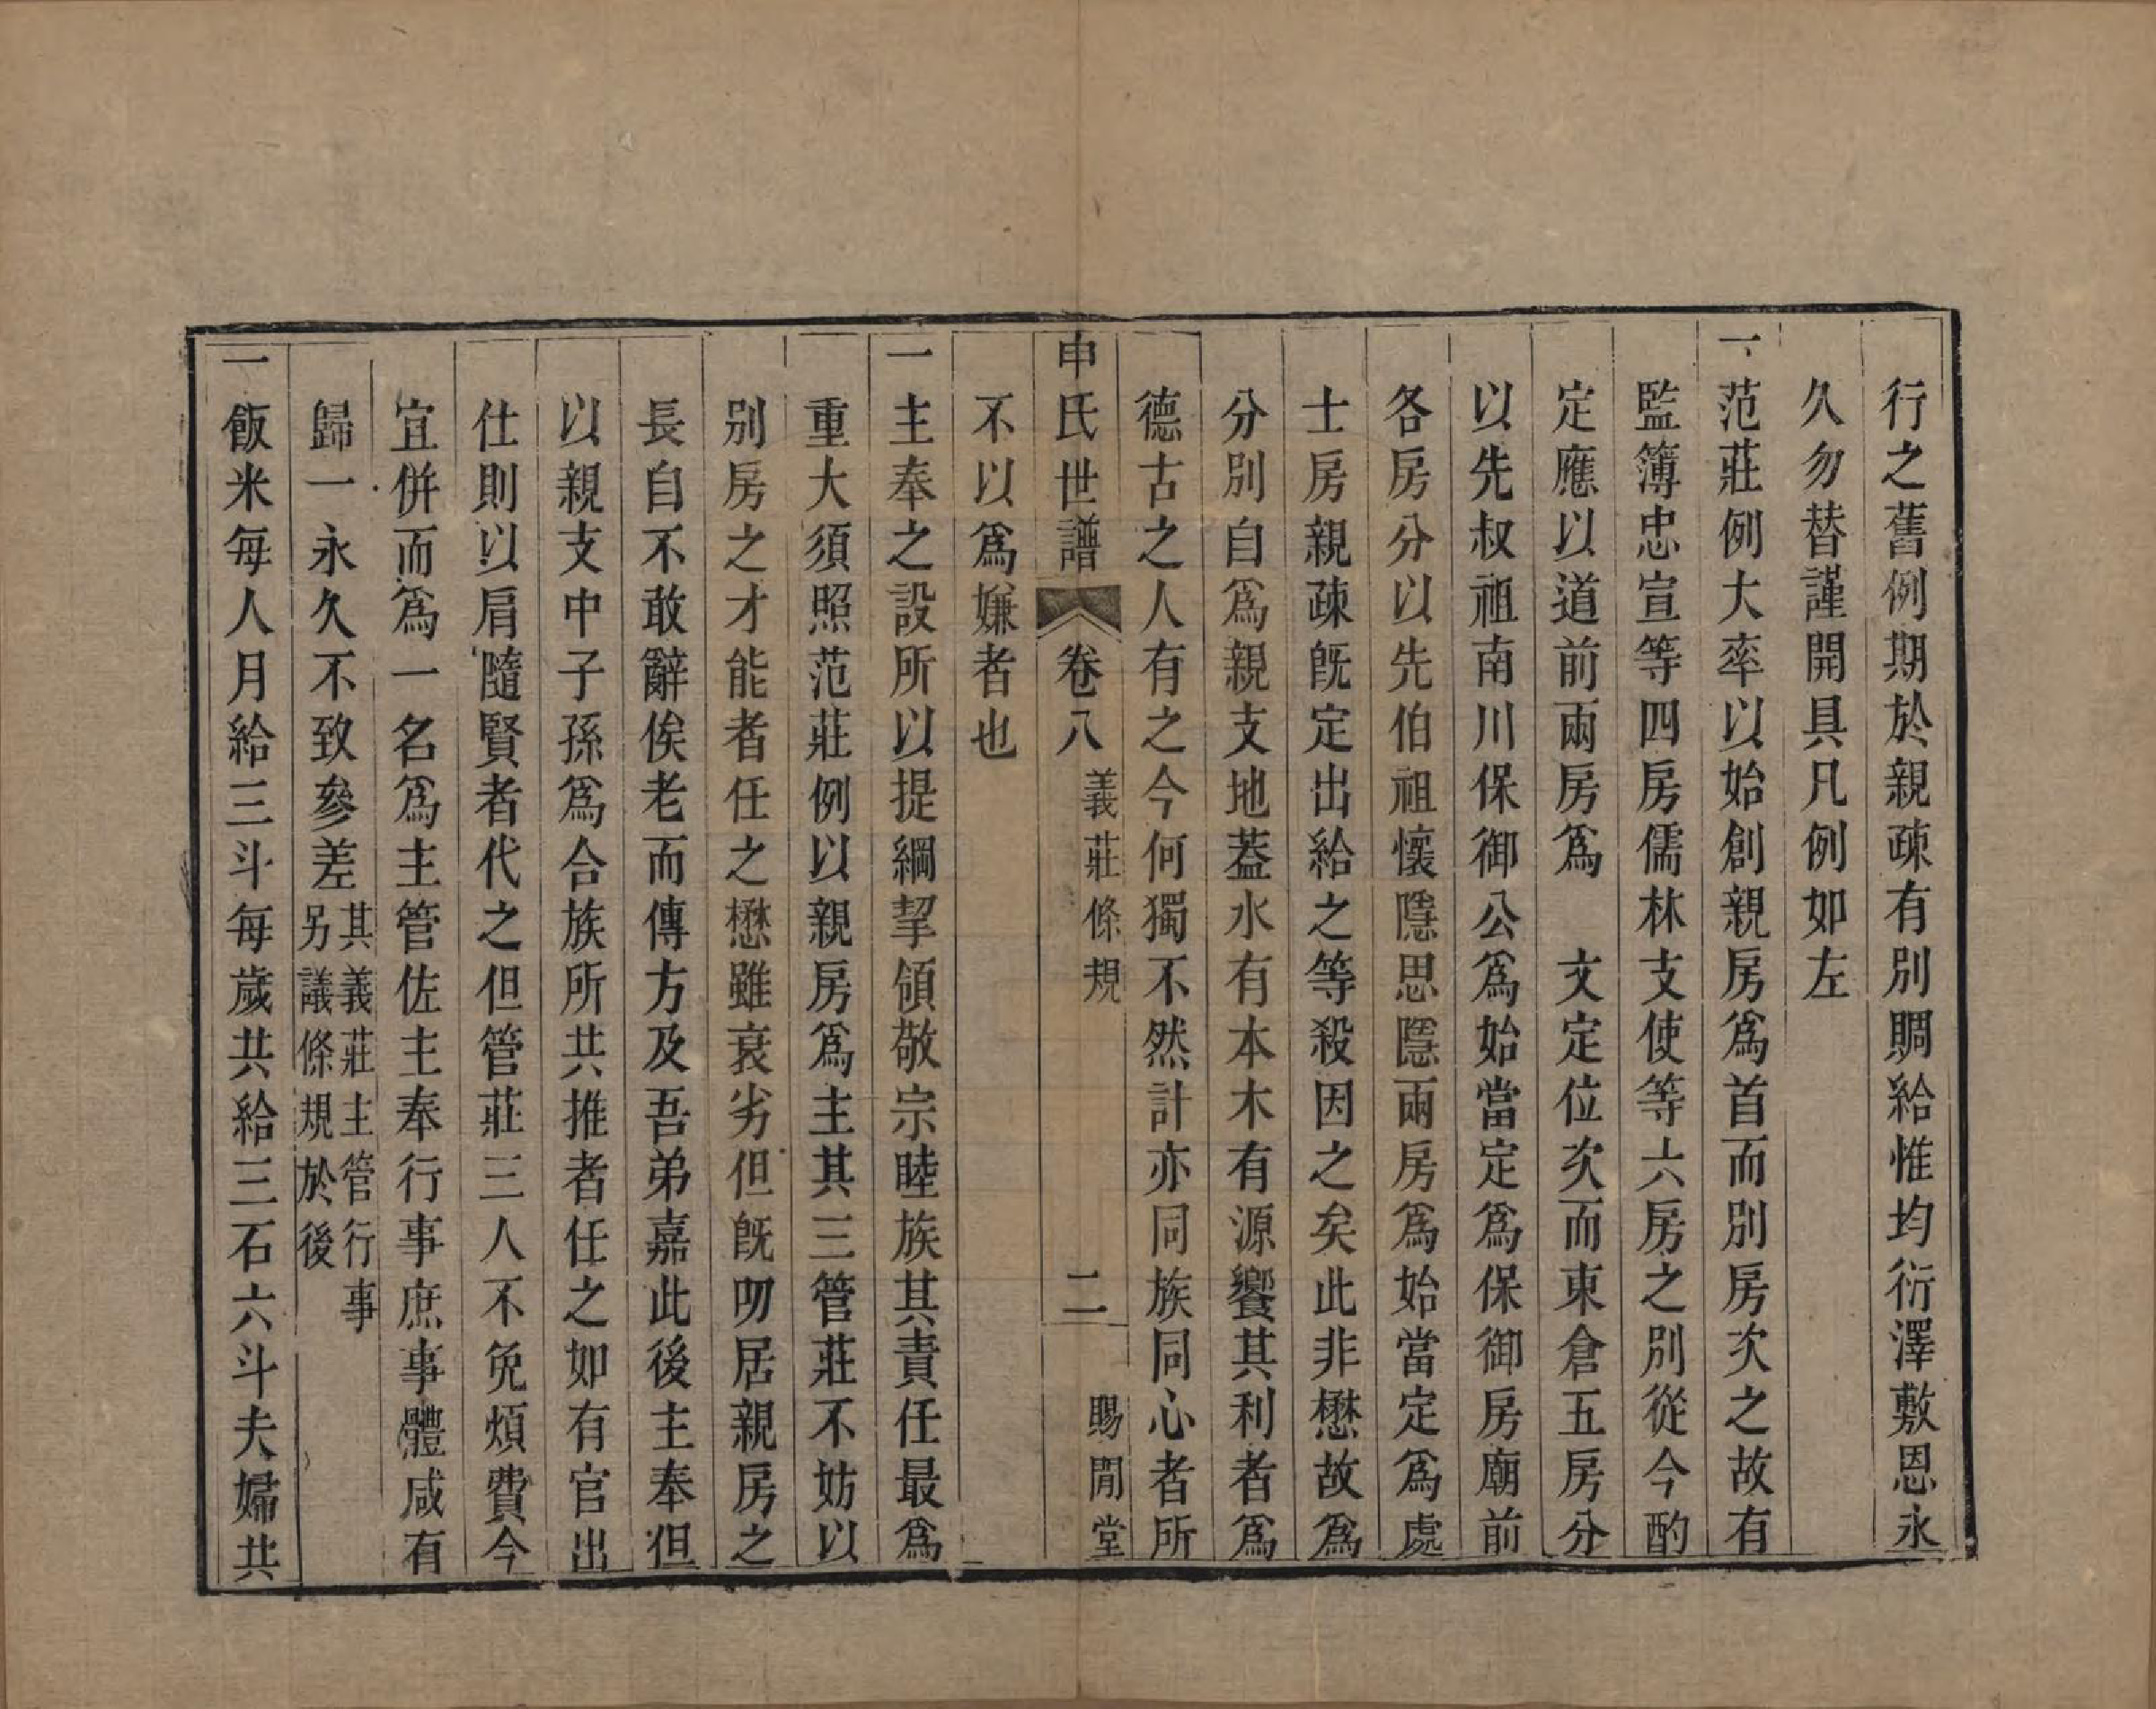 行之舊例期於親疎有別賙給惟均衍澤敷恩永
久勿替謹開具凡例如左
一范莊例大率以始創親房爲首而別房次之故有
監簿忠宣等四房儒林支使等六房之別從今酌
定應以道前兩房爲　文定位次而東倉五房分
以先叔祖南川保御公爲始當定爲保御房廟前
各房分以先伯祖懷隱思隱兩房爲始當定爲處
士房親疎旣定出給之等殺因之矣此非懋故爲
分別自爲親支地蓋水有本木有源饗其利者爲
德古之人有之今何獨不然計亦同族同心者所
申氏世譜　卷八　義莊條規　二　賜閒堂
不以爲嫌者也
一主奉之設所以提綱挈領敬宗睦族其責任最爲
重大須照范莊例以親房爲主其三管莊不妨以
別房之才能者任之懋雖衰劣但旣叨居親房之
長自不敢辭俟老而傳方及吾弟嘉此後主奉但
以親支中子孫爲合族所共推者任之如有官出
仕則以肩隨賢者代之但管莊三人不免煩費今
宜併而爲一名爲主管佐主奉行事庶事體咸有
歸一永久不致參差其義莊主管行事另議條規於後
一飯米每人月給三斗每歲共給三石六斗夫婦共